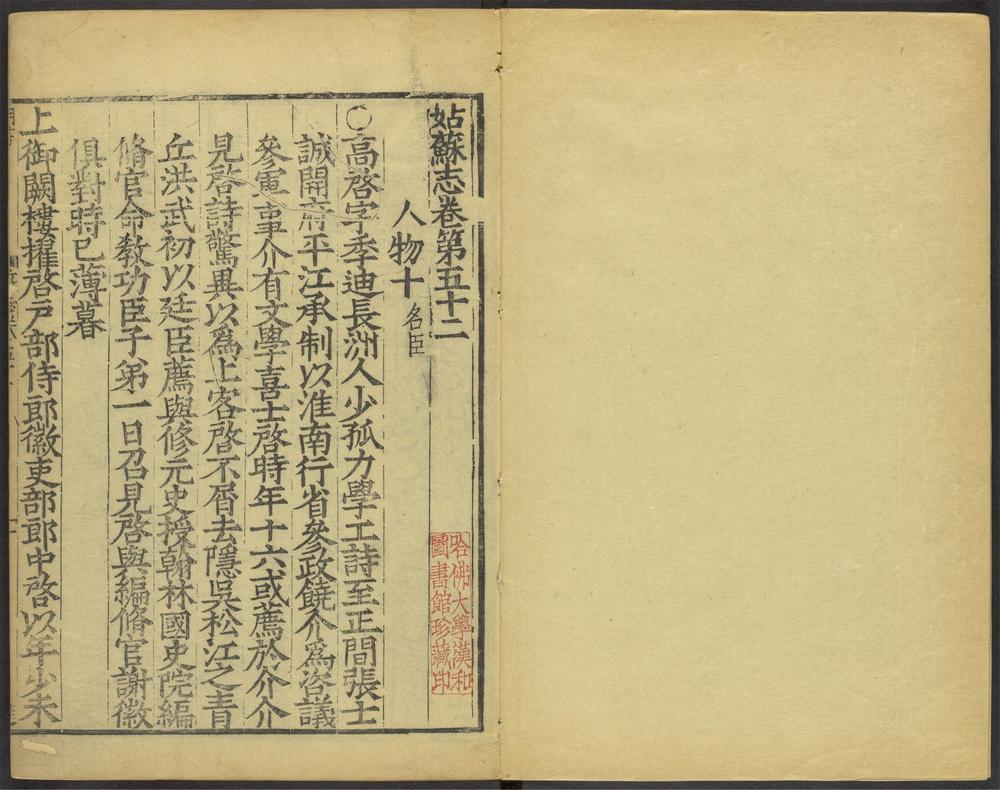 姑蘇志卷第五十二
人物十 名臣
○高啓字季迪長洲人少孤力學工詩至正間張士
誠開府平江承制以淮南行省參政饒介爲咨議
參軍事介有文學喜士啓時年十六或薦於介介
見啓詩驚異以爲上客啓不屑去隱吳松江之青
丘洪武初以廷臣薦與修元史授翰林國史院編
脩官命教功臣子弟一日召見啓與編脩官謝徽
俱對時已薄暮
上御闕樓擢啓戶部侍郎徽吏部郎中啓以年少未
哈佛大學漢和
圖書館珍藏印